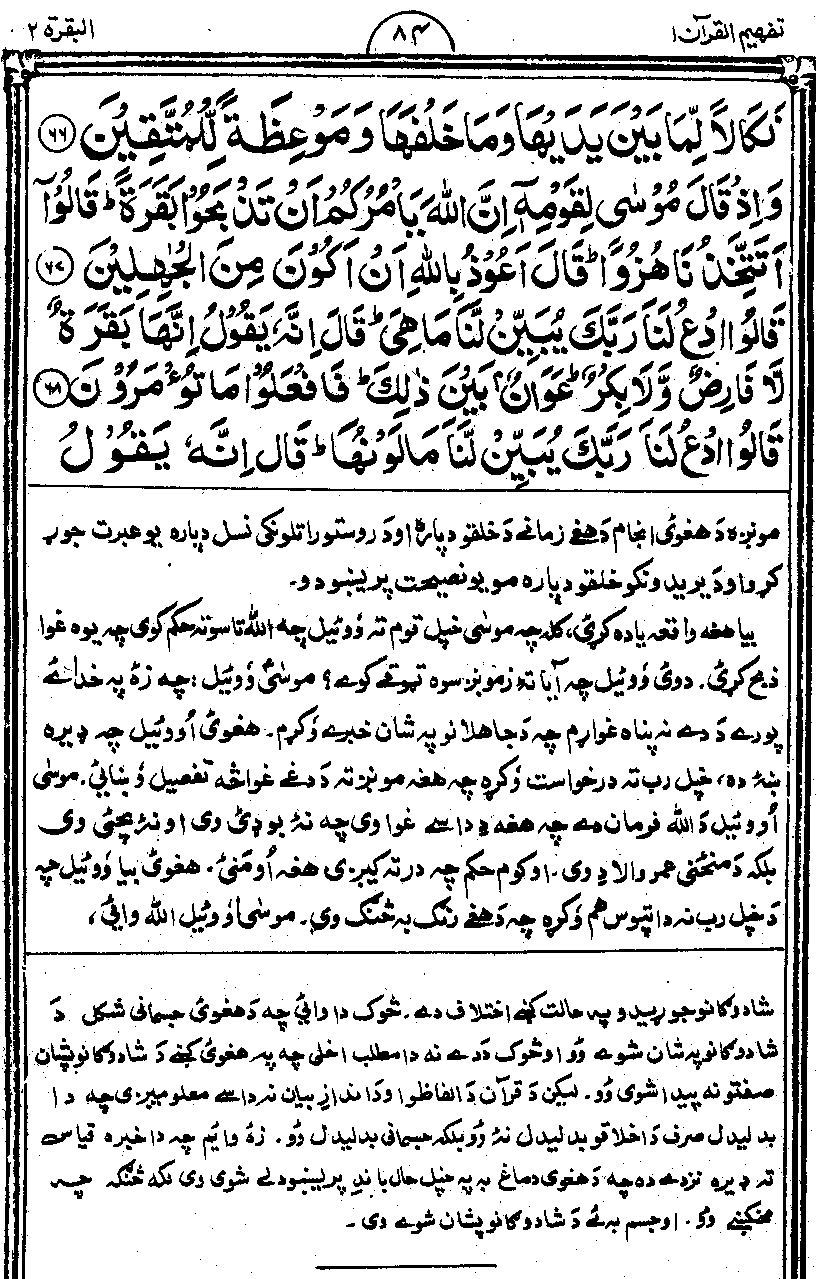 تفهيم القرآن ۱
۸۴
البقرة ۲
نَكَالًا لِّمَا بَيْنَ يَدَيْهَا وَمَا خَلْفَهَا وَمَوْعِظَةً لِّلْمُتَّقِيْنَ ﴿۶۶﴾
وَاِذْ قَالَ مُوْسٰى لِقَوْمِهٖٓ اِنَّ اللّٰهَ يَاْمُرُكُمْ اَنْ تَذْبَحُوْا بَقَرَةً ؕ قَالُوْٓا
اَتَتَّخِذُنَا هُزُوًا ؕ قَالَ اَعُوْذُ بِاللّٰهِ اَنْ اَكُوْنَ مِنَ الْجٰهِلِيْنَ ﴿۶۷﴾
قَالُوا ادْعُ لَنَا رَبَّكَ يُبَيِّنْ لَّنَا مَا هِىَ ؕ قَالَ اِنَّهٗ يَقُوْلُ اِنَّهَا بَقَرَةٌ
لَّا فَارِضٌ وَّلَا بِكْرٌ ؕ عَوَانٌۢ بَيْنَ ذٰلِكَ ؕ فَافْعَلُوْا مَا تُؤْمَرُوْنَ ﴿۶۸﴾
قَالُوا ادْعُ لَنَا رَبَّكَ يُبَيِّنْ لَّنَا مَا لَوْنُهَا ؕ قَالَ اِنَّهٗ يَقُوْلُ
مونږه دَ هغوئ انجام دَ هغے زمانے دَ خلقو دپاره او دَ روستو راتلونکی نسل دپاره يو عبرت جوړ
کړو او دَ يريدونکو خلقو دپاره مو يو نصيحت پريښودو۔
بيا هغه واقعه ياده کړئ، کله چه موسیٰ خپل قوم ته وَوئيل چه الله تاسو ته حکم کوی چه يوه غوا
ذبح کړئ۔ دوئ وَوئيل چه آيا ته زمونږ سره ټوقے کوے؟ موسیٰ وَوئيل: چه زهٔ په خدائے
پورے دَ دے نه پناه غواړم چه دَ جاهلانو په شان خبرے وَکړم۔ هغوئ اُووئيل چه ډيره
ښهٔ ده، خپل رب ته درخواست وَکړه چه هغه مونږ ته دَ دغے غوا څه تفصيل وَښائی۔ موسیٰ
اُووئيل دَ الله فرمان دے چه هغه دِ داسے غوا وی چه نهٔ بوډئ وی او نهٔ بچئ وی
بلکه دَ منځنی عمر والا دِ وی۔ اوکوم حکم چه درته کيږی هغه اُومنئ۔ هغوئ بيا وَوئيل چه
دَ خپل رب نه دا تپوس هم وَکړه چه دَ هغے رنګ به څنګ وی۔ موسیٰ اوَوئيل الله وائی،
شادوګانو جوړيدو په حالت کښے اختلاف دے۔ څوک دا وائی چه دَ هغوئ جسمانی شکل دَ
شادوګانو په شان شوے وُو او څوک دَ دے نه دا مطلب اخلی چه په هغوئ کښے دَ شادوګانو پشان
صفتونه پيدا شوی وُو۔ ليکن دَ قرآن دَ الفاظو او دَ اندازِ بيان نه داسے معلوميږی چه دا
بدليدل صرف دَ اخلاقو بدليدل نهٔ وُو بلکه جسمانی بدليدل وُو۔ زهٔ وايم چه دا خبره قياس
ته ډيره نزدے ده چه دَ هغوی دماغ به په خپل حال باندِ پريښودلے شوی وی لکه څنګه چه
مخکښے وُو۔ او جسم به ئے دَ شادوګانو پشان شوے وی۔